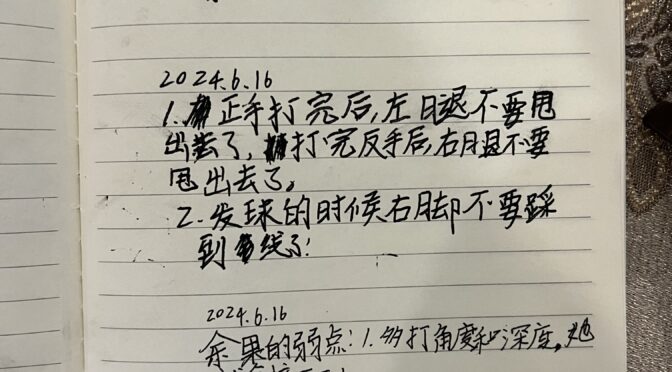 2024.6.16
1. 正手打完后,左腿不要甩
出去了,打完反手后,右腿不要
甩出去了。
2.发球的时候右脚不要踩
到线了!
2024.6.16
余果的弱点:1.多打角度和深度,她